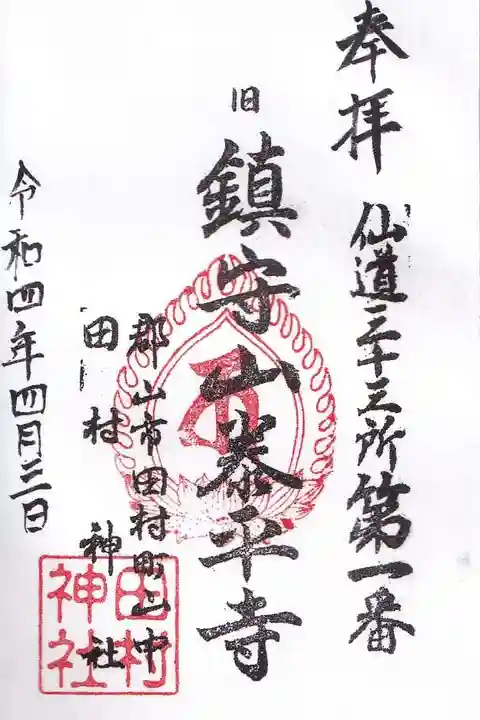 奉拝
仙道三十三所第一番
旧
鎮守山泰平寺
郡山市田村町山中
田村神社
田村
神社
令和四年四月三日